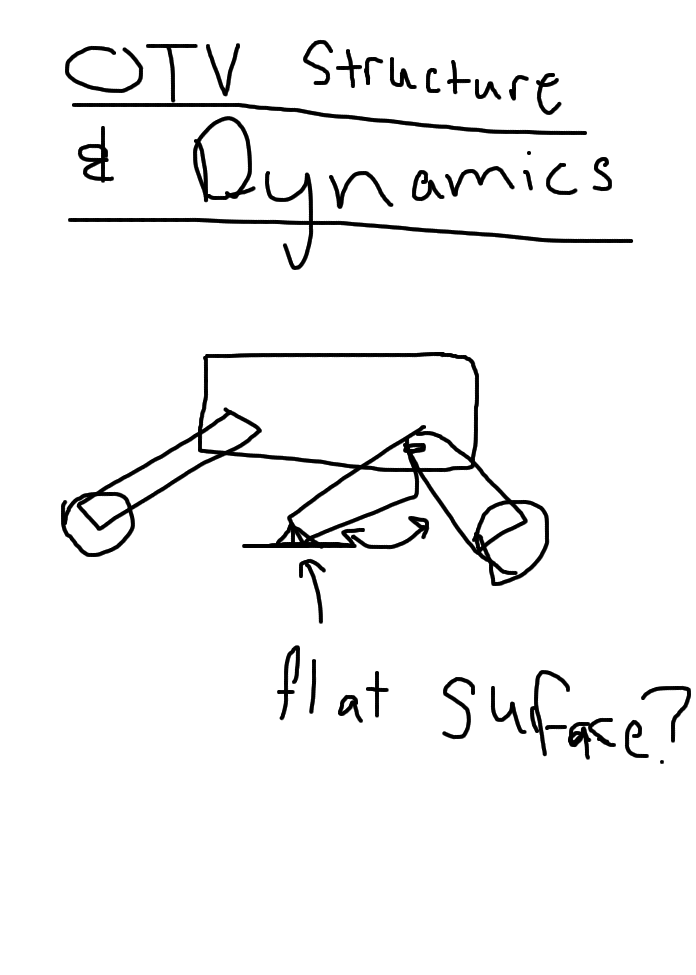 OTV Structure
& Dynamics
flat surface?